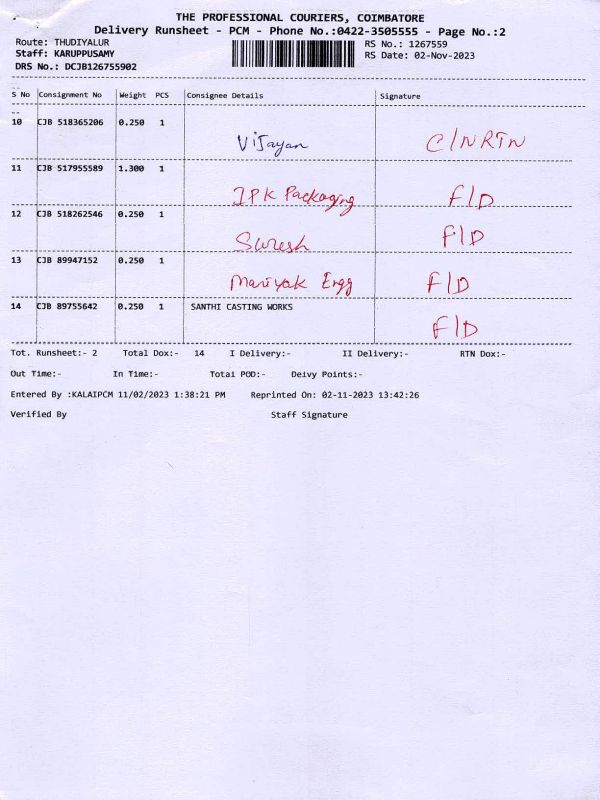 THE PROFESSIONAL COURIERS, COIMBATORE
Delivery Runsheet - PCM - Phone No.:0422-3505555 - Page No.:2
Route: THUDIYALUR RS No.: 1267559
Staff: KARUPPUSAMY RS Date: 02-Nov-2023
DRS No.: DCJB126755902
S No Consignment No Weight PCS Consignee Details Signature
10 CJB 518365206 0.250 1
Vijayan C/NRTN
11 CJB 517955589 1.300 1
JPK Packaging F/D
12 CJB 518262546 0.250 1
Suresh F/D
13 CJB 89947152 0.250 1
Mariyak Engg F/D
14 CJB 89755642 0.250 1 SANTHI CASTING WORKS
F/D
Tot. Runsheet:- 2 Total Dox:- 14 I Delivery:- II Delivery:- RTN Dox:-
Out Time:- In Time:- Total POD:- Deivy Points:-
Entered By :KALAIPCM 11/02/2023 1:38:21 PM Reprinted On: 02-11-2023 13:42:26
Verified By Staff Signature